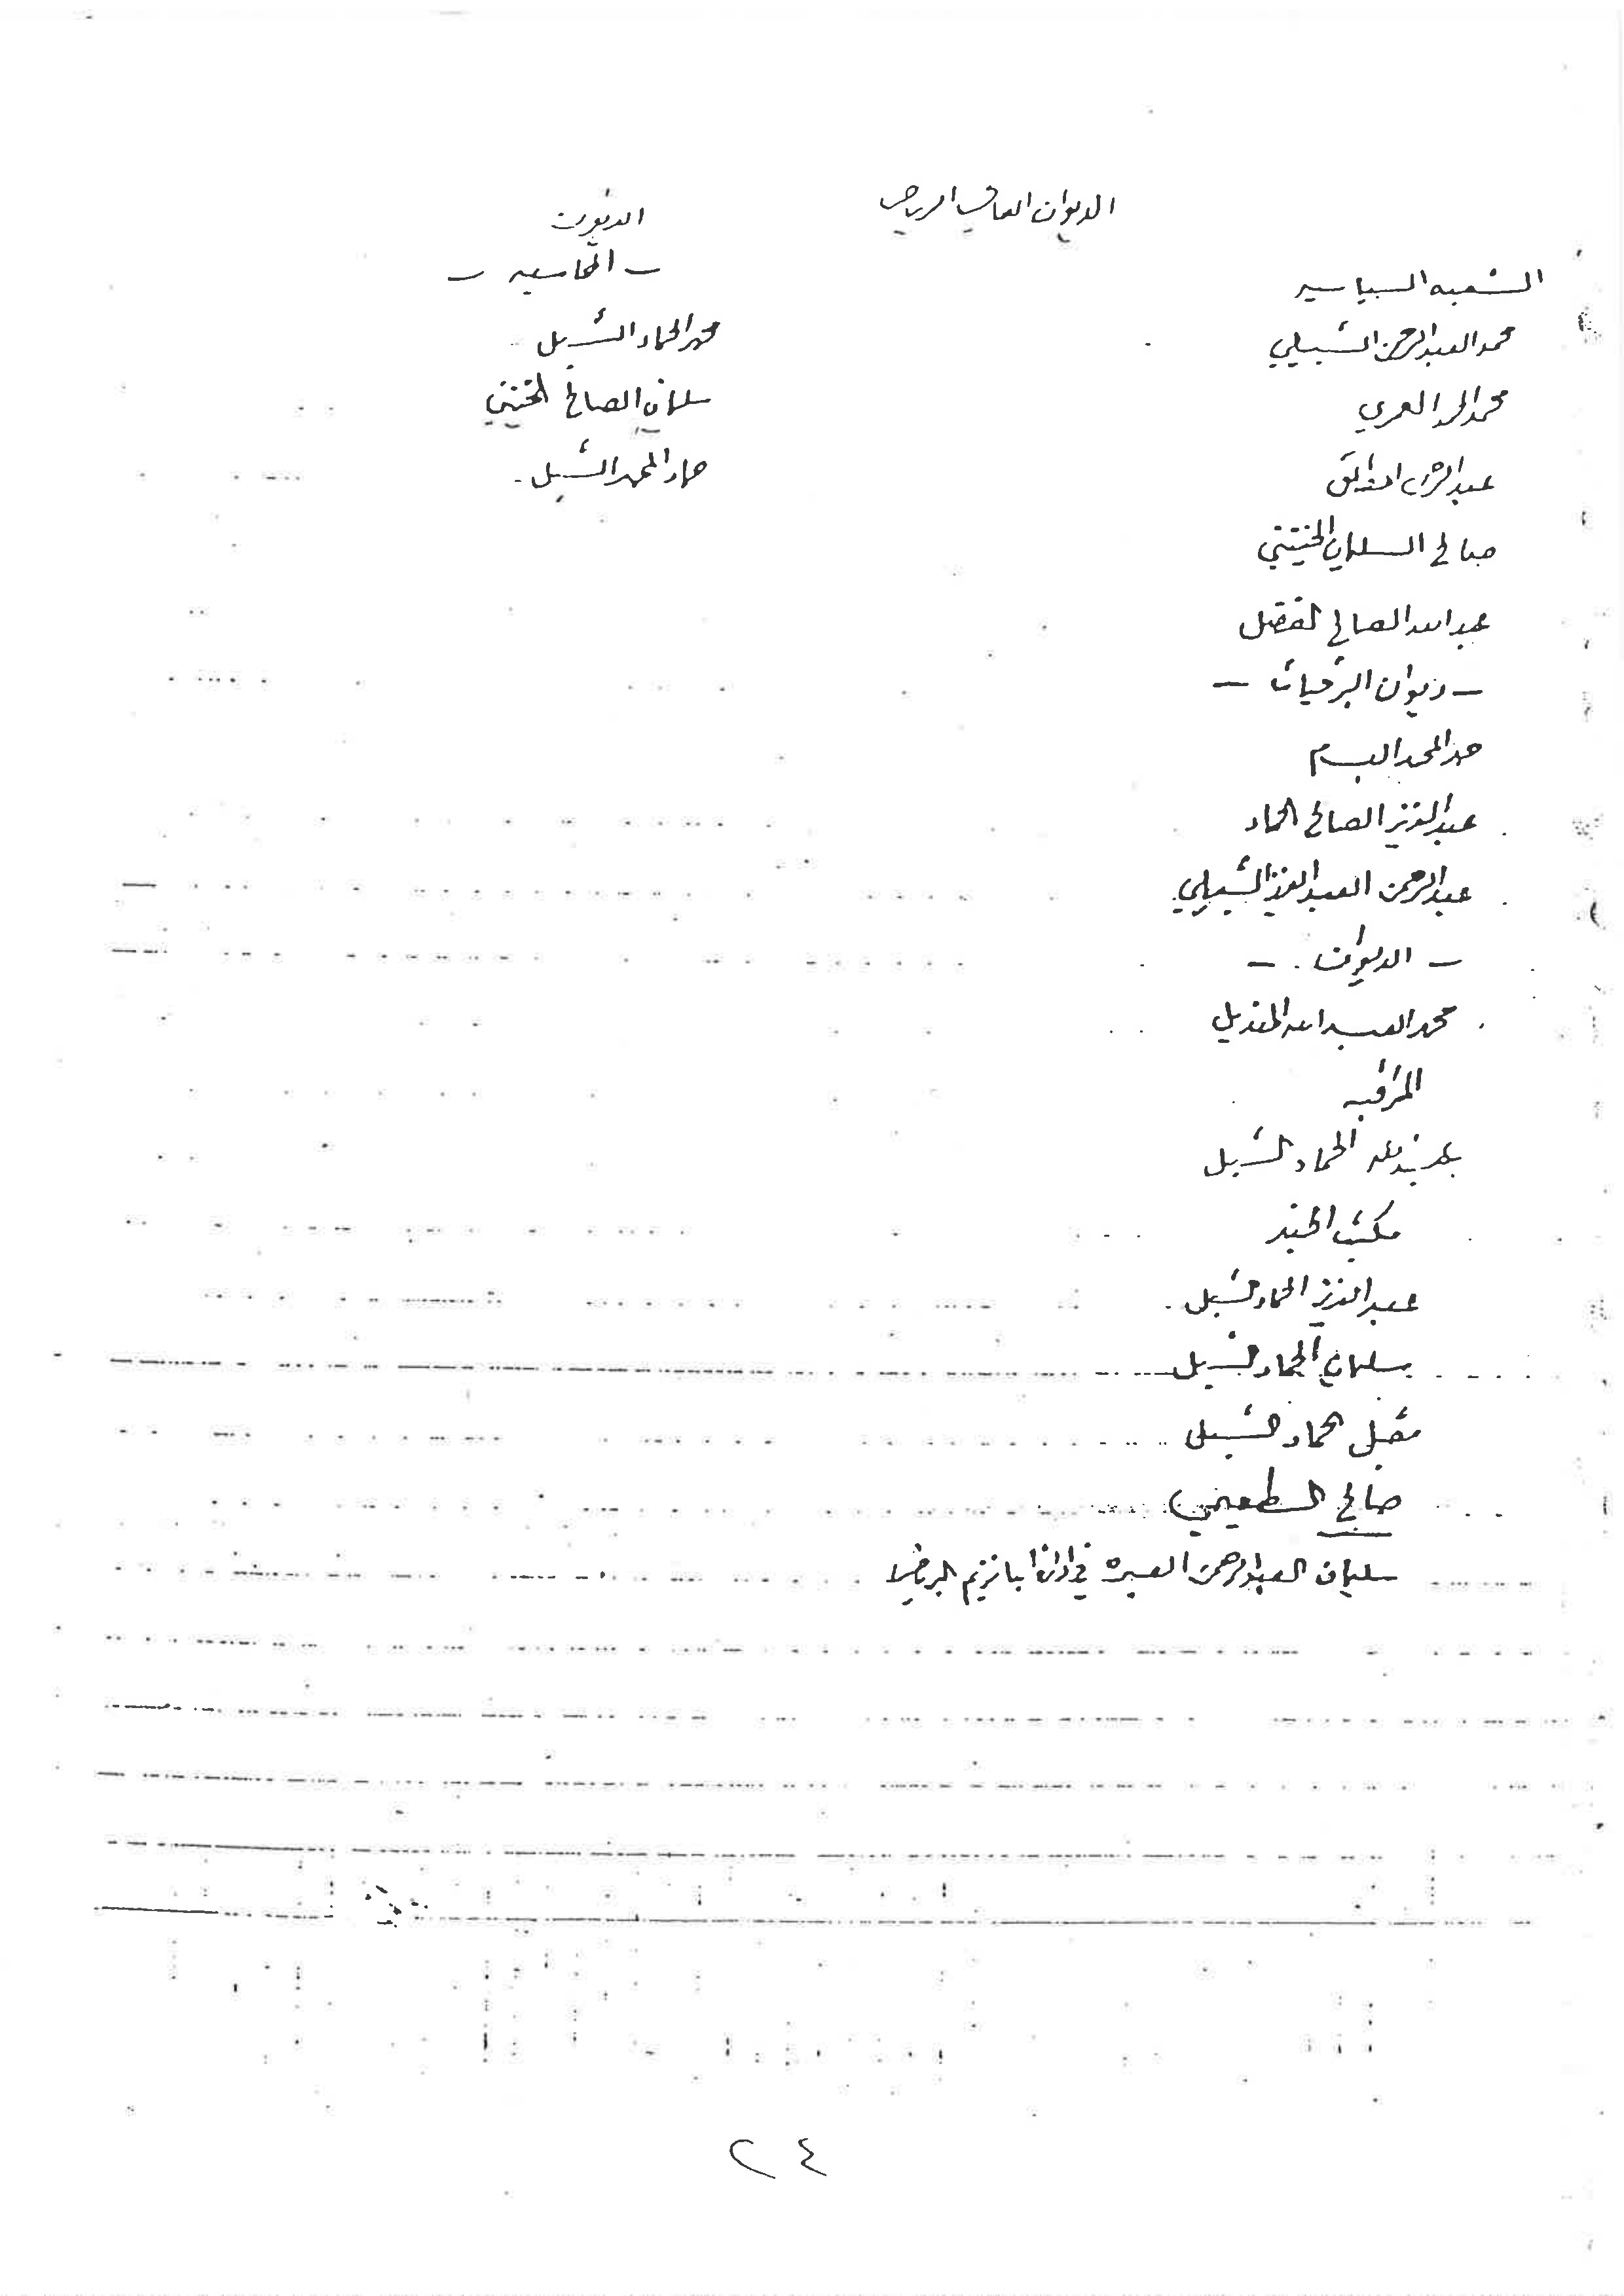 الديوان العالي الرياض
الشعبه السياسيه
محمد العبدالرحمن الشبيلي
محمد الحمد العمري
عبدالله
صالح السليمان الخنيني
عبدالله الصالح الفضل
– ديوان البرقيات –
حمد المحمد البسام
عبدالعزيز الصالح الحماد
عبدالرحمن العبدالعزيز الشبيلي
– الديوان –
محمد العبدالله القنديل
المراقبه
الحماد الشبل
مكتب الجند
عبدالعزيز الحماد الشبل
سليمان الحماد الشبل
مقبل الحماد الشبل
صالح السطعيمي
سليمان العبدالرحمن العبره في
الديوان
– المحاسبه –
محمد الحماد الشبل
سليمان الصالح الخنيني
حماد المحمد الشبل
٢٤